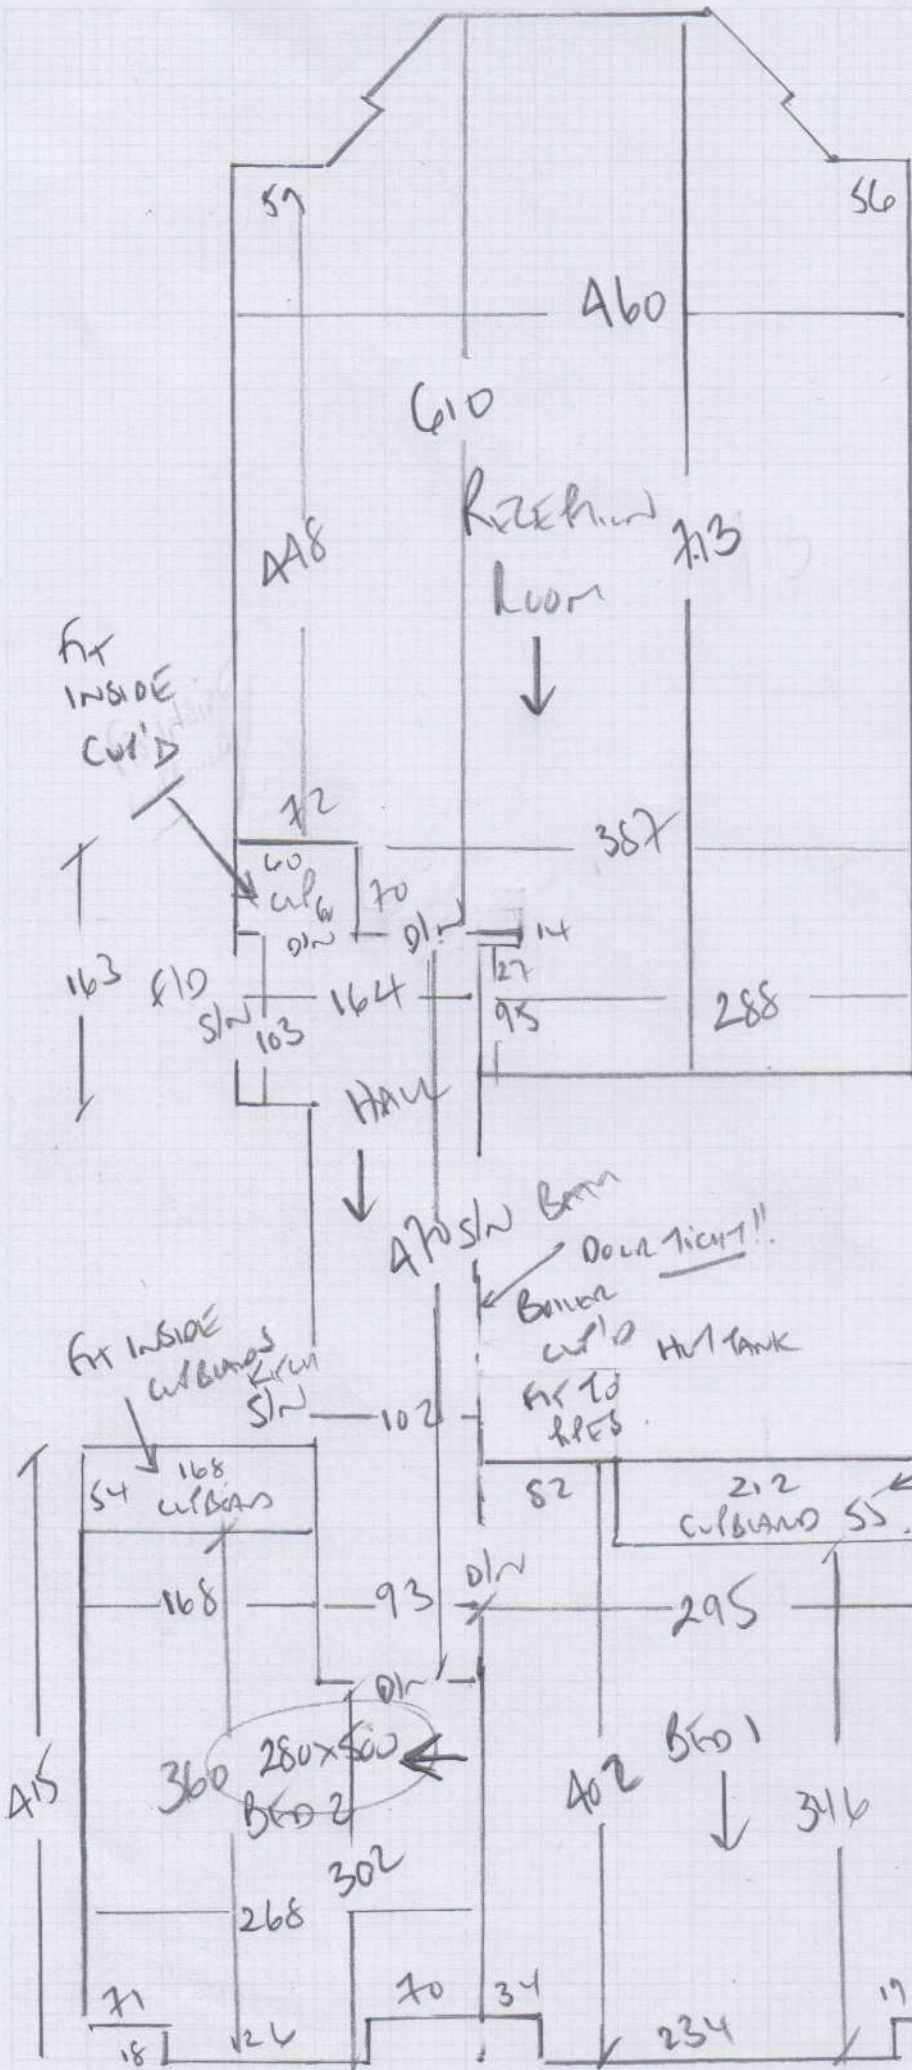 57
56
460
610
448
713
ROOM
FIT
INSIDE
CUP'D
72
387
60
70
D/N
D/N
14
163
F/D
S/N
103
164
27
95
288
HALL
470
S/N
BATH
DOOR TIGHT!!
BOILER
CUP'D
HOT TANK
FIT TO
FIT INSIDE
CUPBOARDS
KITCH
S/N
102
54
168
CUPBOARD
82
212
CUPBOARD
55
168
93
D/N
295
D/N
415
360
280 x 500
BED 2
402
BED 1
346
302
268
71
70
34
18
126
234